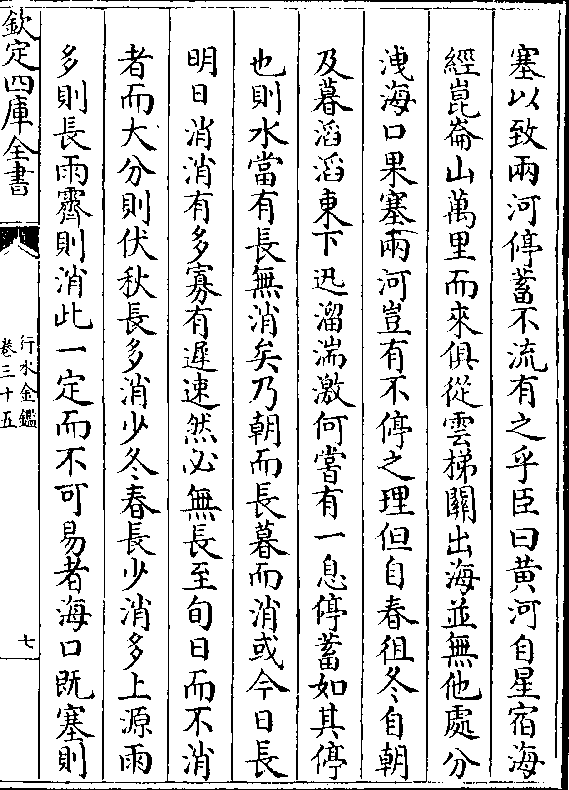 塞以致兩河停蓄不流有之乎臣曰黄河自星宿海
經崑崙山萬里而來俱從雲梯關出海並無他處分
洩海口果塞兩河豈有不停之理但自春徂冬自朝
及暮滔滔東下迅溜湍激何嘗有一息停蓄如其停
也則水當有長無消矣乃朝而長暮而消或今日長
明日消消有多寡有遲速然必無長至旬日而不消
者而大分則伏秋長多消少冬春長少消多上源雨
多則長雨霽則消此一定而不可易者海口既塞則
欽定四庫全書
行水金鑑
卷三十五
七